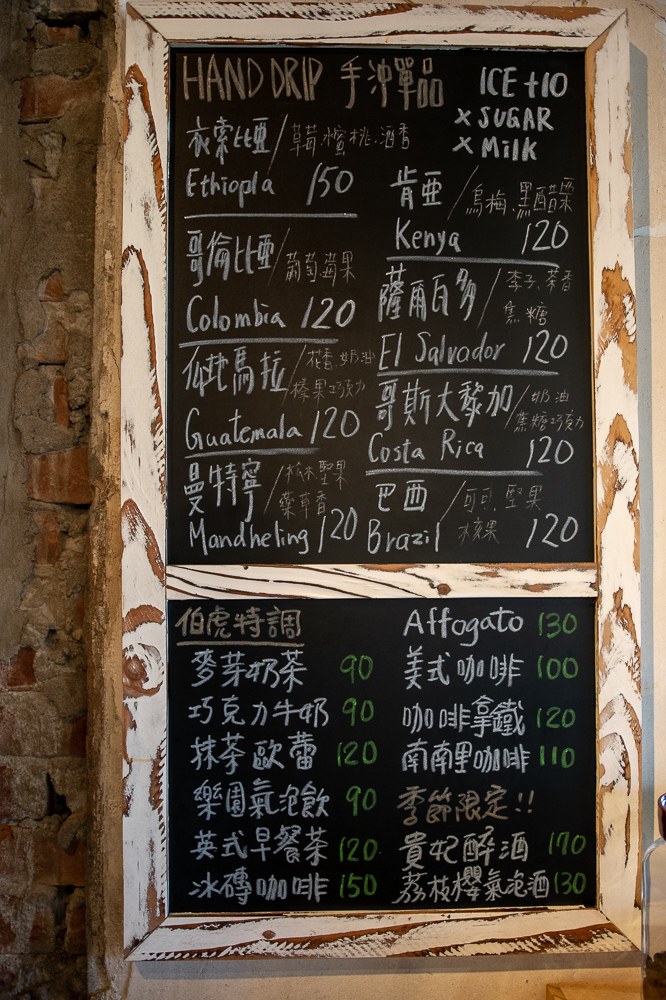 HAND DRIP 手沖單品
ICE +10
× SUGAR
× Milk
衣索比亞/草莓.蜜桃.酒香
Ethiopia 150
哥倫比亞/葡萄莓果
Colombia 120
瓜地馬拉/花香.奶油
榛果巧克力
Guatemala 120
曼特寧/松木堅果
藥草香
Mandheling 120
肯亞/烏梅.黑醋栗
Kenya 120
薩爾瓦多/李子.茶香
焦糖
El Salvador 120
哥斯大黎加/奶油
焦糖巧克力
Costa Rica 120
巴西/可可.堅果
核果
Brazil 120
伯虎特調
麥芽奶茶 90
巧克力牛奶 90
抹茶歐蕾 120
樂園氣泡飲 90
英式早餐茶 120
冰磚咖啡 150
Affogato 130
美式咖啡 100
咖啡拿鐵 120
南南里咖啡 110
季節限定!!
貴妃醉酒 170
荔枝櫻氣泡酒 130